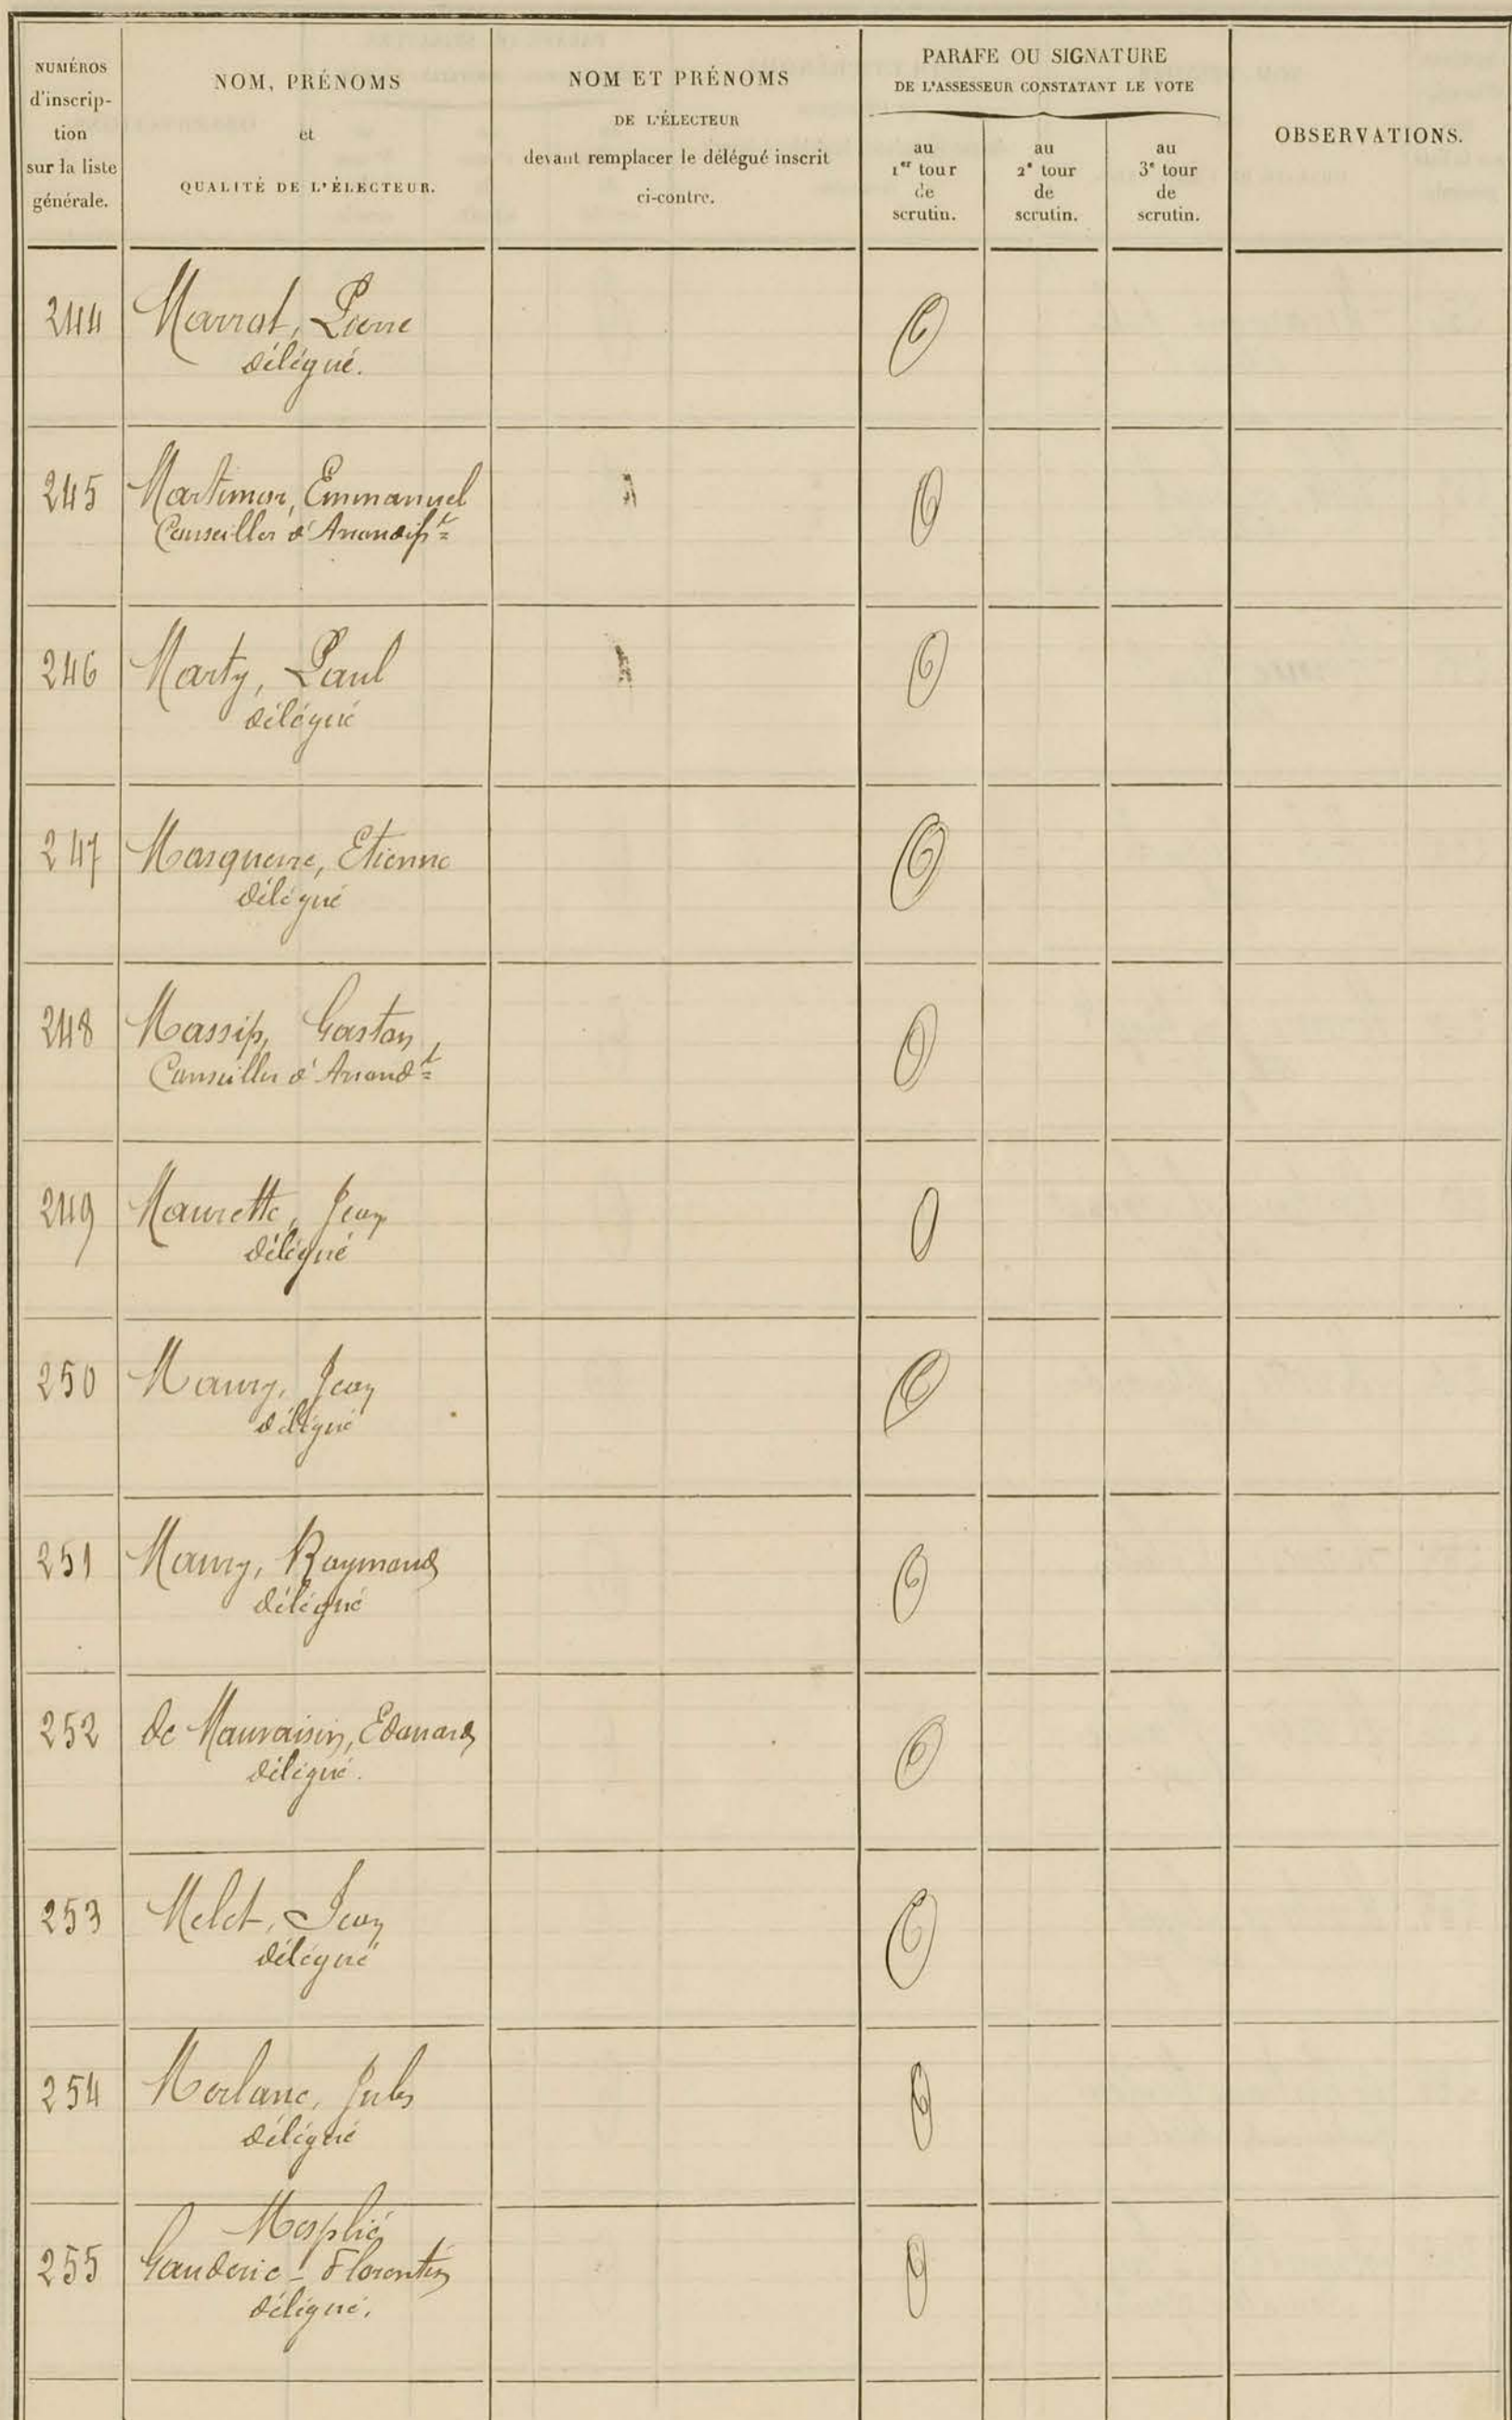 NUMÉROS
d'inscrip-
tion
sur la liste
générale.
NOM, PRÉNOMS
et
QUALITÉ DE L'ÉLECTEUR.
NOM ET PRÉNOMS
DE L'ÉLECTEUR
devant remplacer le délégué inscrit
ci-contre.
PARAFE OU SIGNATURE
DE L'ASSESSEUR CONSTATANT LE VOTE
au
1er tour
de
scrutin.
au
2e tour
de
scrutin.
au
3e tour
de
scrutin.
OBSERVATIONS.
244 Marrot, Pierre
délégué.
245 Martimor, Emmanuel
Conseiller d'Arrondisst
246 Marty, Paul
délégué
247 Masquerre, Etienne
délégué
248 Massip, Gaston,
Conseiller d'Arrondt
249 Maurette, Jean
délégué
250 Maury, Jean
délégué
251 Maury, Raymond
délégué
252 de Mauvaisin, Edouard
délégué.
253 Melet, Jean
délégué
254 Merlane, Jules
délégué
255 Mesplié
Gauderic-Florentin
délégué.